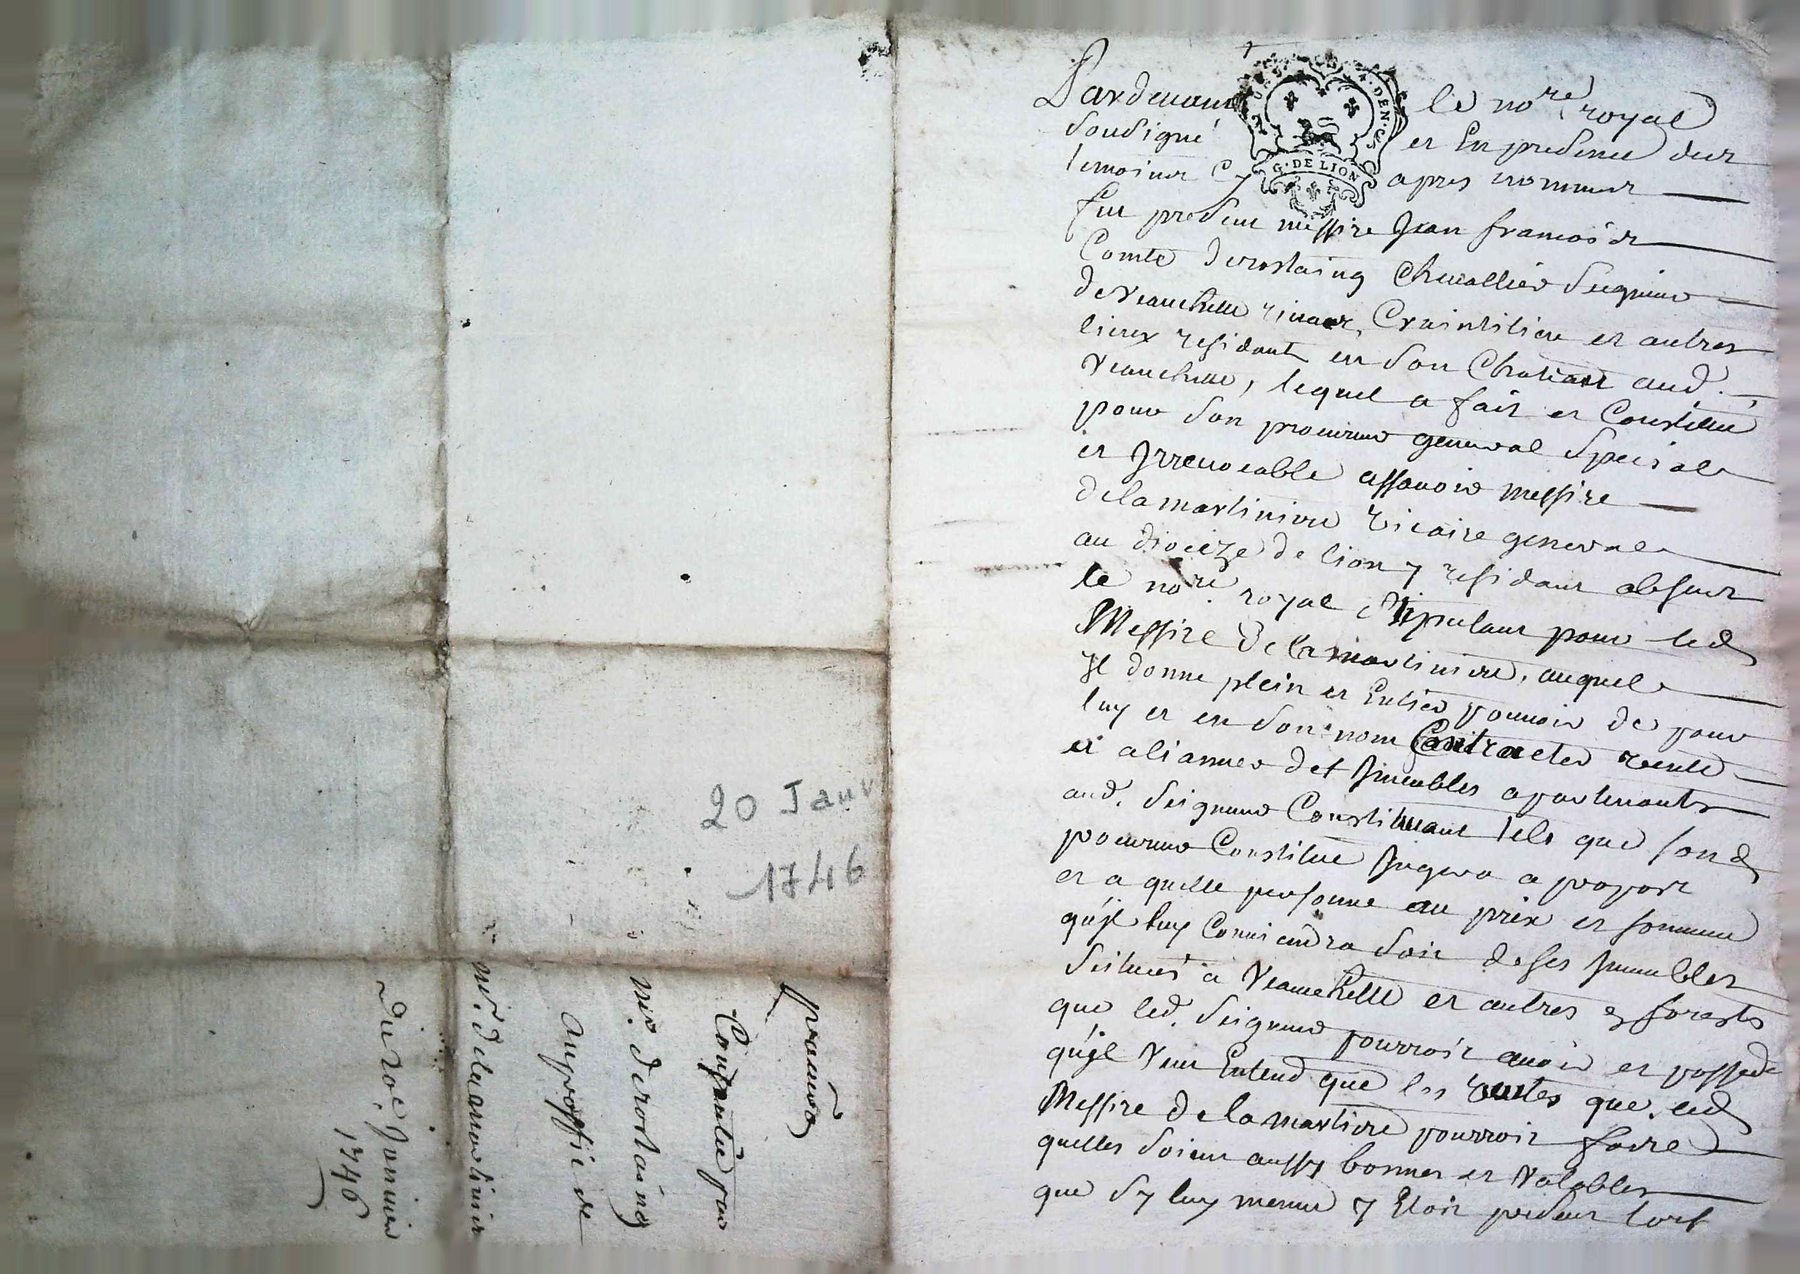 Pardevant le no.re royal
sousigné et En presence des
temoins Cy apres nommes
fut present messire Jean francois de
Comte derostaing Chevallier Seigneur
de Veauchette Rivas, Craintilieu et autres
lieux residant en son Chateau aud.
Veauchette, lequel a fait et Constitué
pour son procureur general Special
et Irrevocable assavoir messire
delamartiniere Vicaire general
au dioceze de lion y residant absent
le no.re royal stipulant pour led
Messire de la martiniere, auquel
Il donne plein et Entier pouvoir de pour
luy et en son nom Contracter vente
et
aud. Seigneur Constituant tels que son d
procureur Constitué Jugera a propost
et a quelle personne au prix et somme
qu'jl luy Conviendra soit de ses Jmeubles
Scitues a Veauchette et autres forests
que led. Seigneur pourroit avoir et possede
qu'jl Veut Entend que les ventes que led
Messire de la martinire pourroit faire
quelles soient aussy bonnes et Valables
que sy luy meme y Etoit present lors
G. DE LION
20 Janv
1746
procure
Consentie par
mr. derostaing
au proffit de
mr. delamartinier
du 20e. Janvier
1746